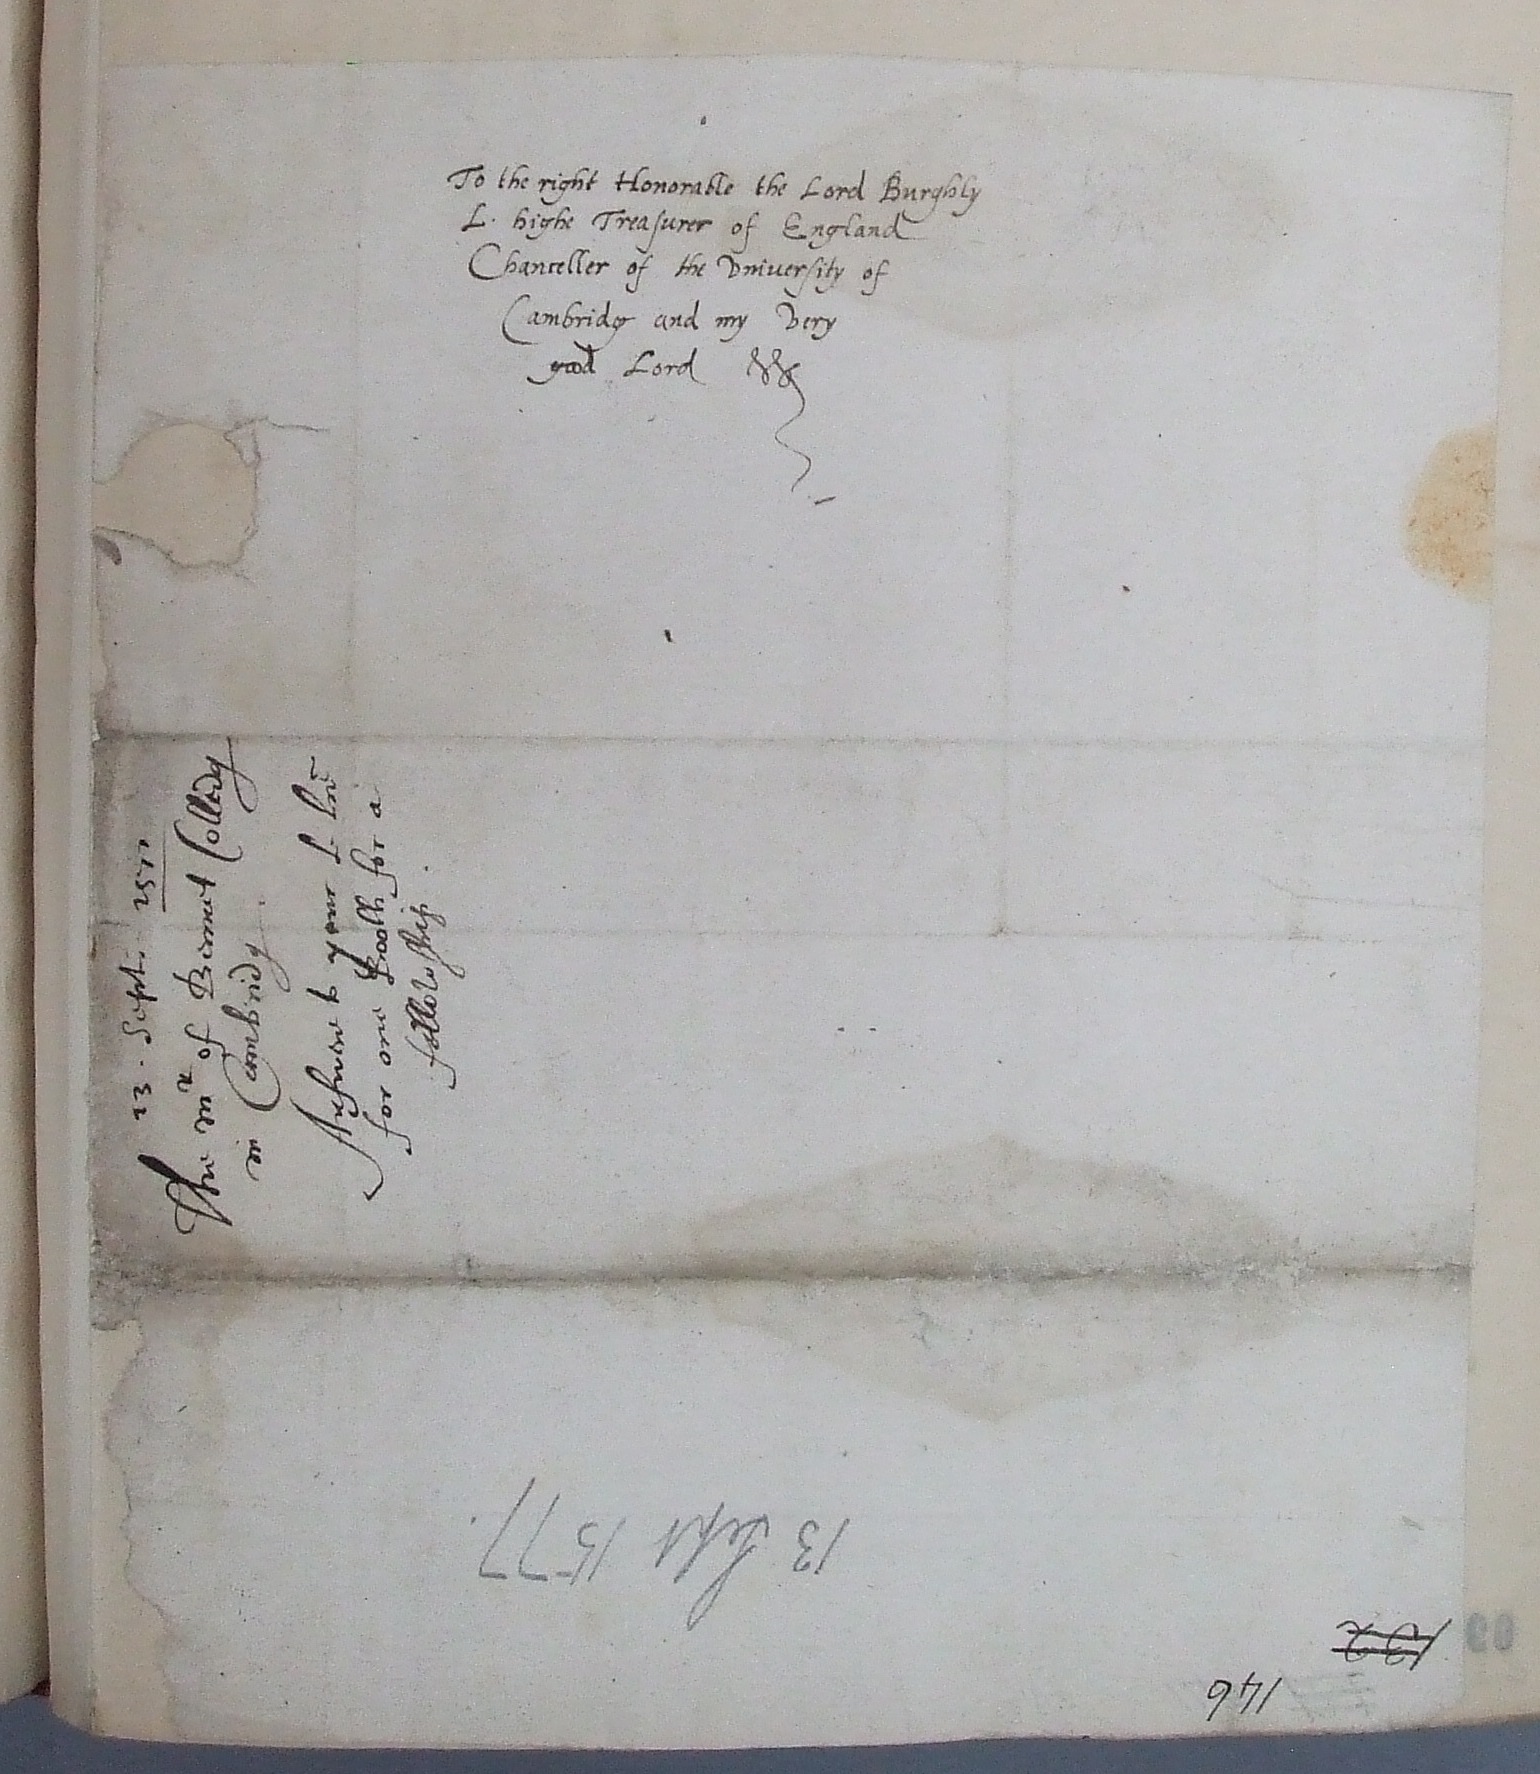 To the right Honorable the Lord Burghly
L. highe Treasurer of England
Chanceller of the Vniuersity of
Cambridg and my Very
good Lord
13. Sept. 1577
The mr of Bennet Colledg
in Cambridg.
Answere to your L. lre
for one Booth for a
fellowship.
13 Sept 1577.
132
146